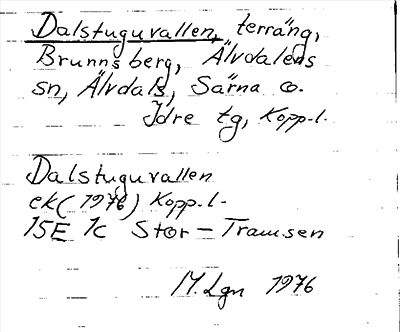 Dalstuguvallen, terräng,
Brunnsberg, Älvdalens
sn, Älvdals, Särna o.
Idre tg, Kopp.l.
Dalstuguvallen
ek (1976) Kopp.l.
15E 1c Stor-Tramsen
M. Lgn 1976